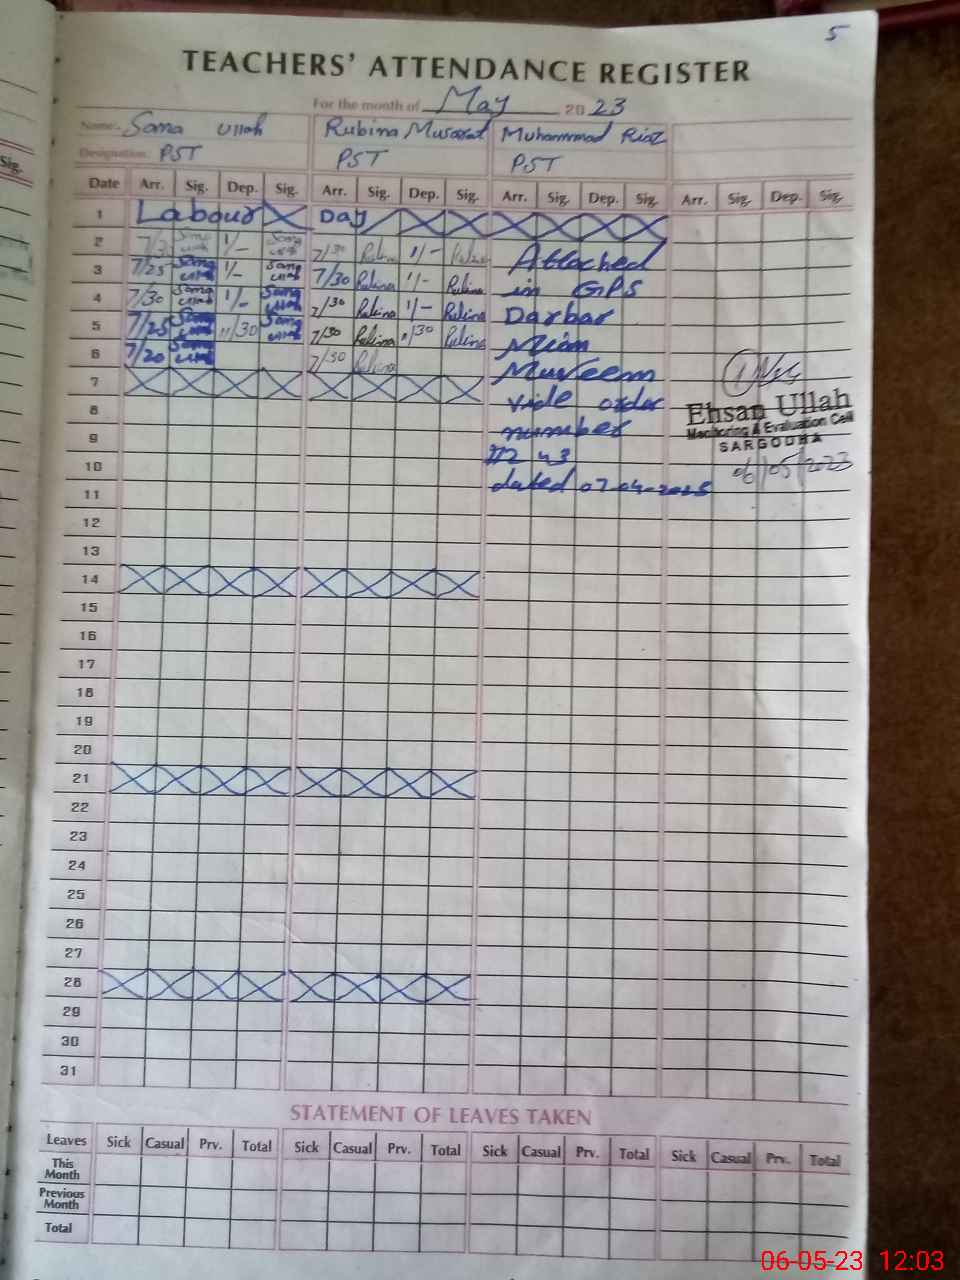 5
TEACHERS' ATTENDANCE REGISTER
For the month of May 2023
Name. Sana Ullah Rubina Musarat Muhammad Riaz
Designation. PST PST PST
Sig.
Date Arr. Sig. Dep. Sig. Arr. Sig. Dep. Sig. Arr. Sig. Dep. Sig. Arr. Sig. Dep. Sig.
1 Labour Day
2 Sana Ullah 1/- Sana Ullah 7/30 Rubina 1/- Rubina Attached
3 7/25 Sana Ullah 1/- Sana Ullah 7/30 Rubina 1/- Rubina in GPS
4 7/30 Sana Ullah 1/- Sana Ullah 7/30 Rubina 1/- Rubina Darbar
5 7/25 Sana Ullah 11/30 Sana Ullah 7/30 Rubina 11/30 Rubina Mian
6 7/20 Sana Ullah 7/30 Rubina
7
8 vide order
9 number
10
11 dated
Ehsan Ullah
Monitoring & Evaluation Cell
SARGODHA
06/05/2023
12
13
14
15
16
17
18
19
20
21
22
23
24
25
26
27
28
29
30
31
STATEMENT OF LEAVES TAKEN
Leaves Sick Casual Prv. Total Sick Casual Prv. Total Sick Casual Prv. Total Sick Casual Prv. Total
This Month
Previous Month
Total
06-05-23 12:03